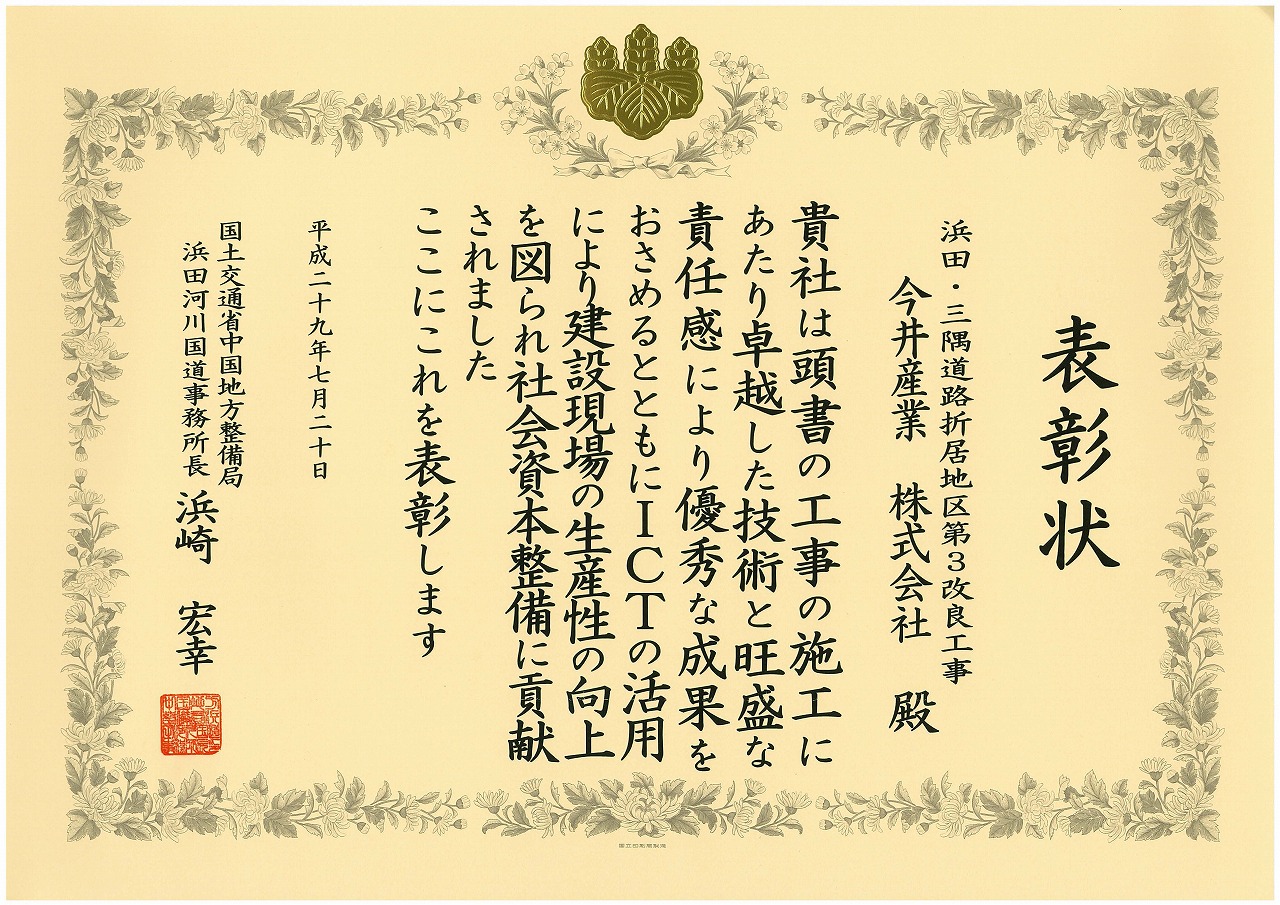 表彰状
浜田・三隅道路折居地区第3改良工事
今井産業 株式会社 殿
貴社は頭書の工事の施工に
あたり卓越した技術と旺盛な
責任感により優秀な成果を
おさめるとともにICTの活用
により建設現場の生産性の向上
を図られ社会資本整備に貢献
されました
ここにこれを表彰します
平成二十九年七月二十日
国土交通省中国地方整備局
浜田河川国道事務所長 浜崎 宏幸
国立印刷局製造